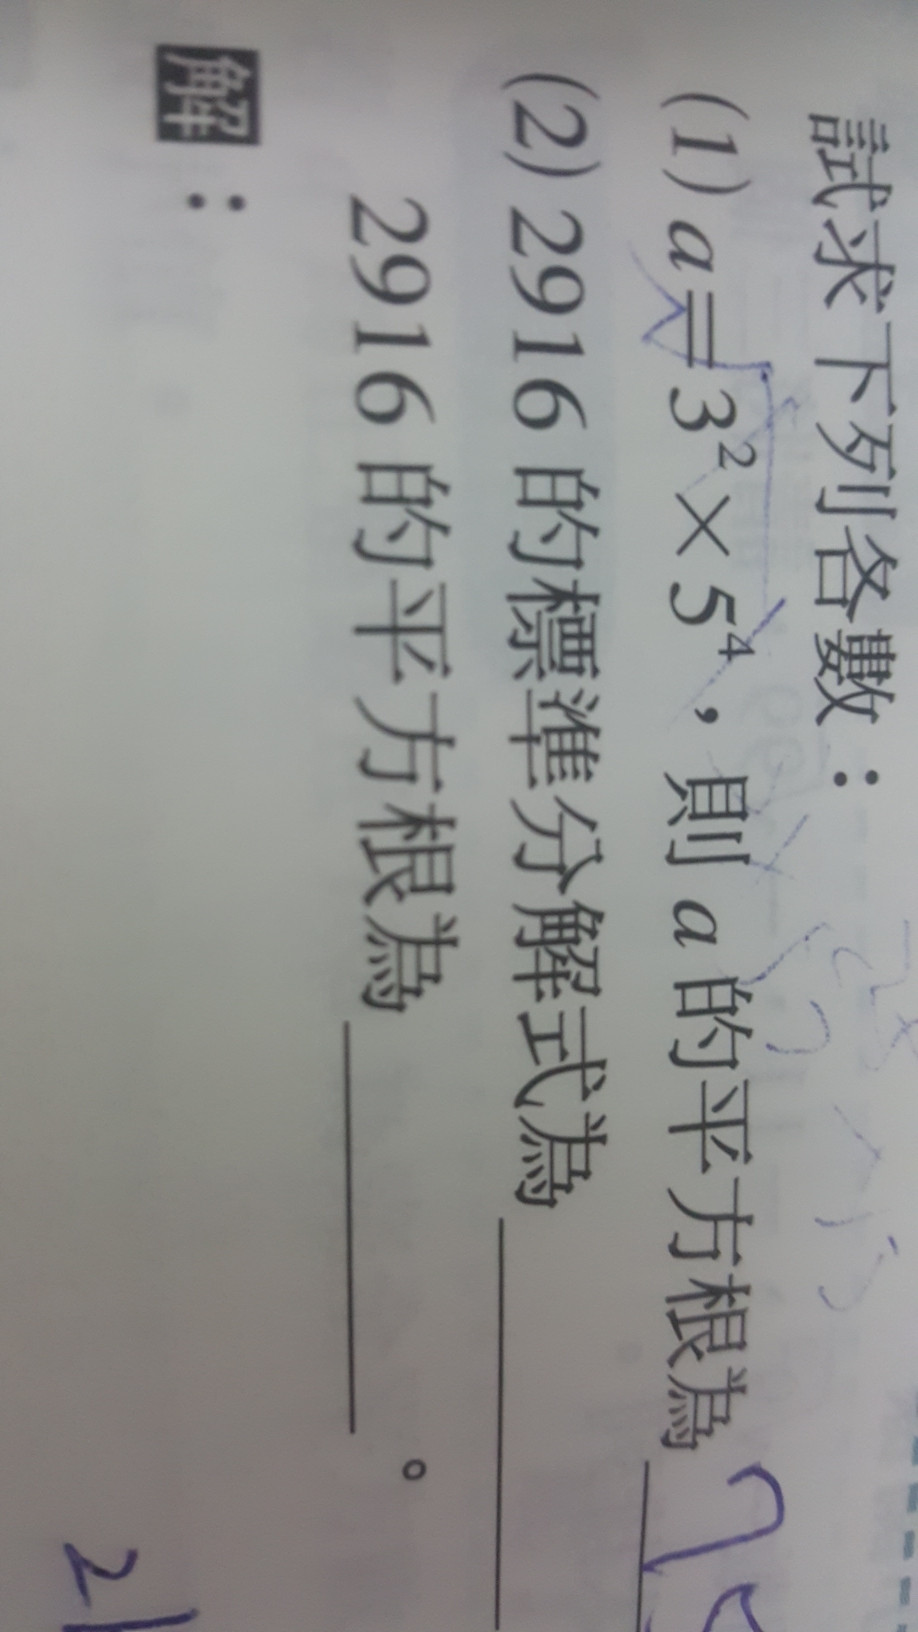 試求下列各數：
(1) a＝3²×5⁴，則 a 的平方根為
(2) 2916 的標準分解式為
2916 的平方根為 。
解：
75
2